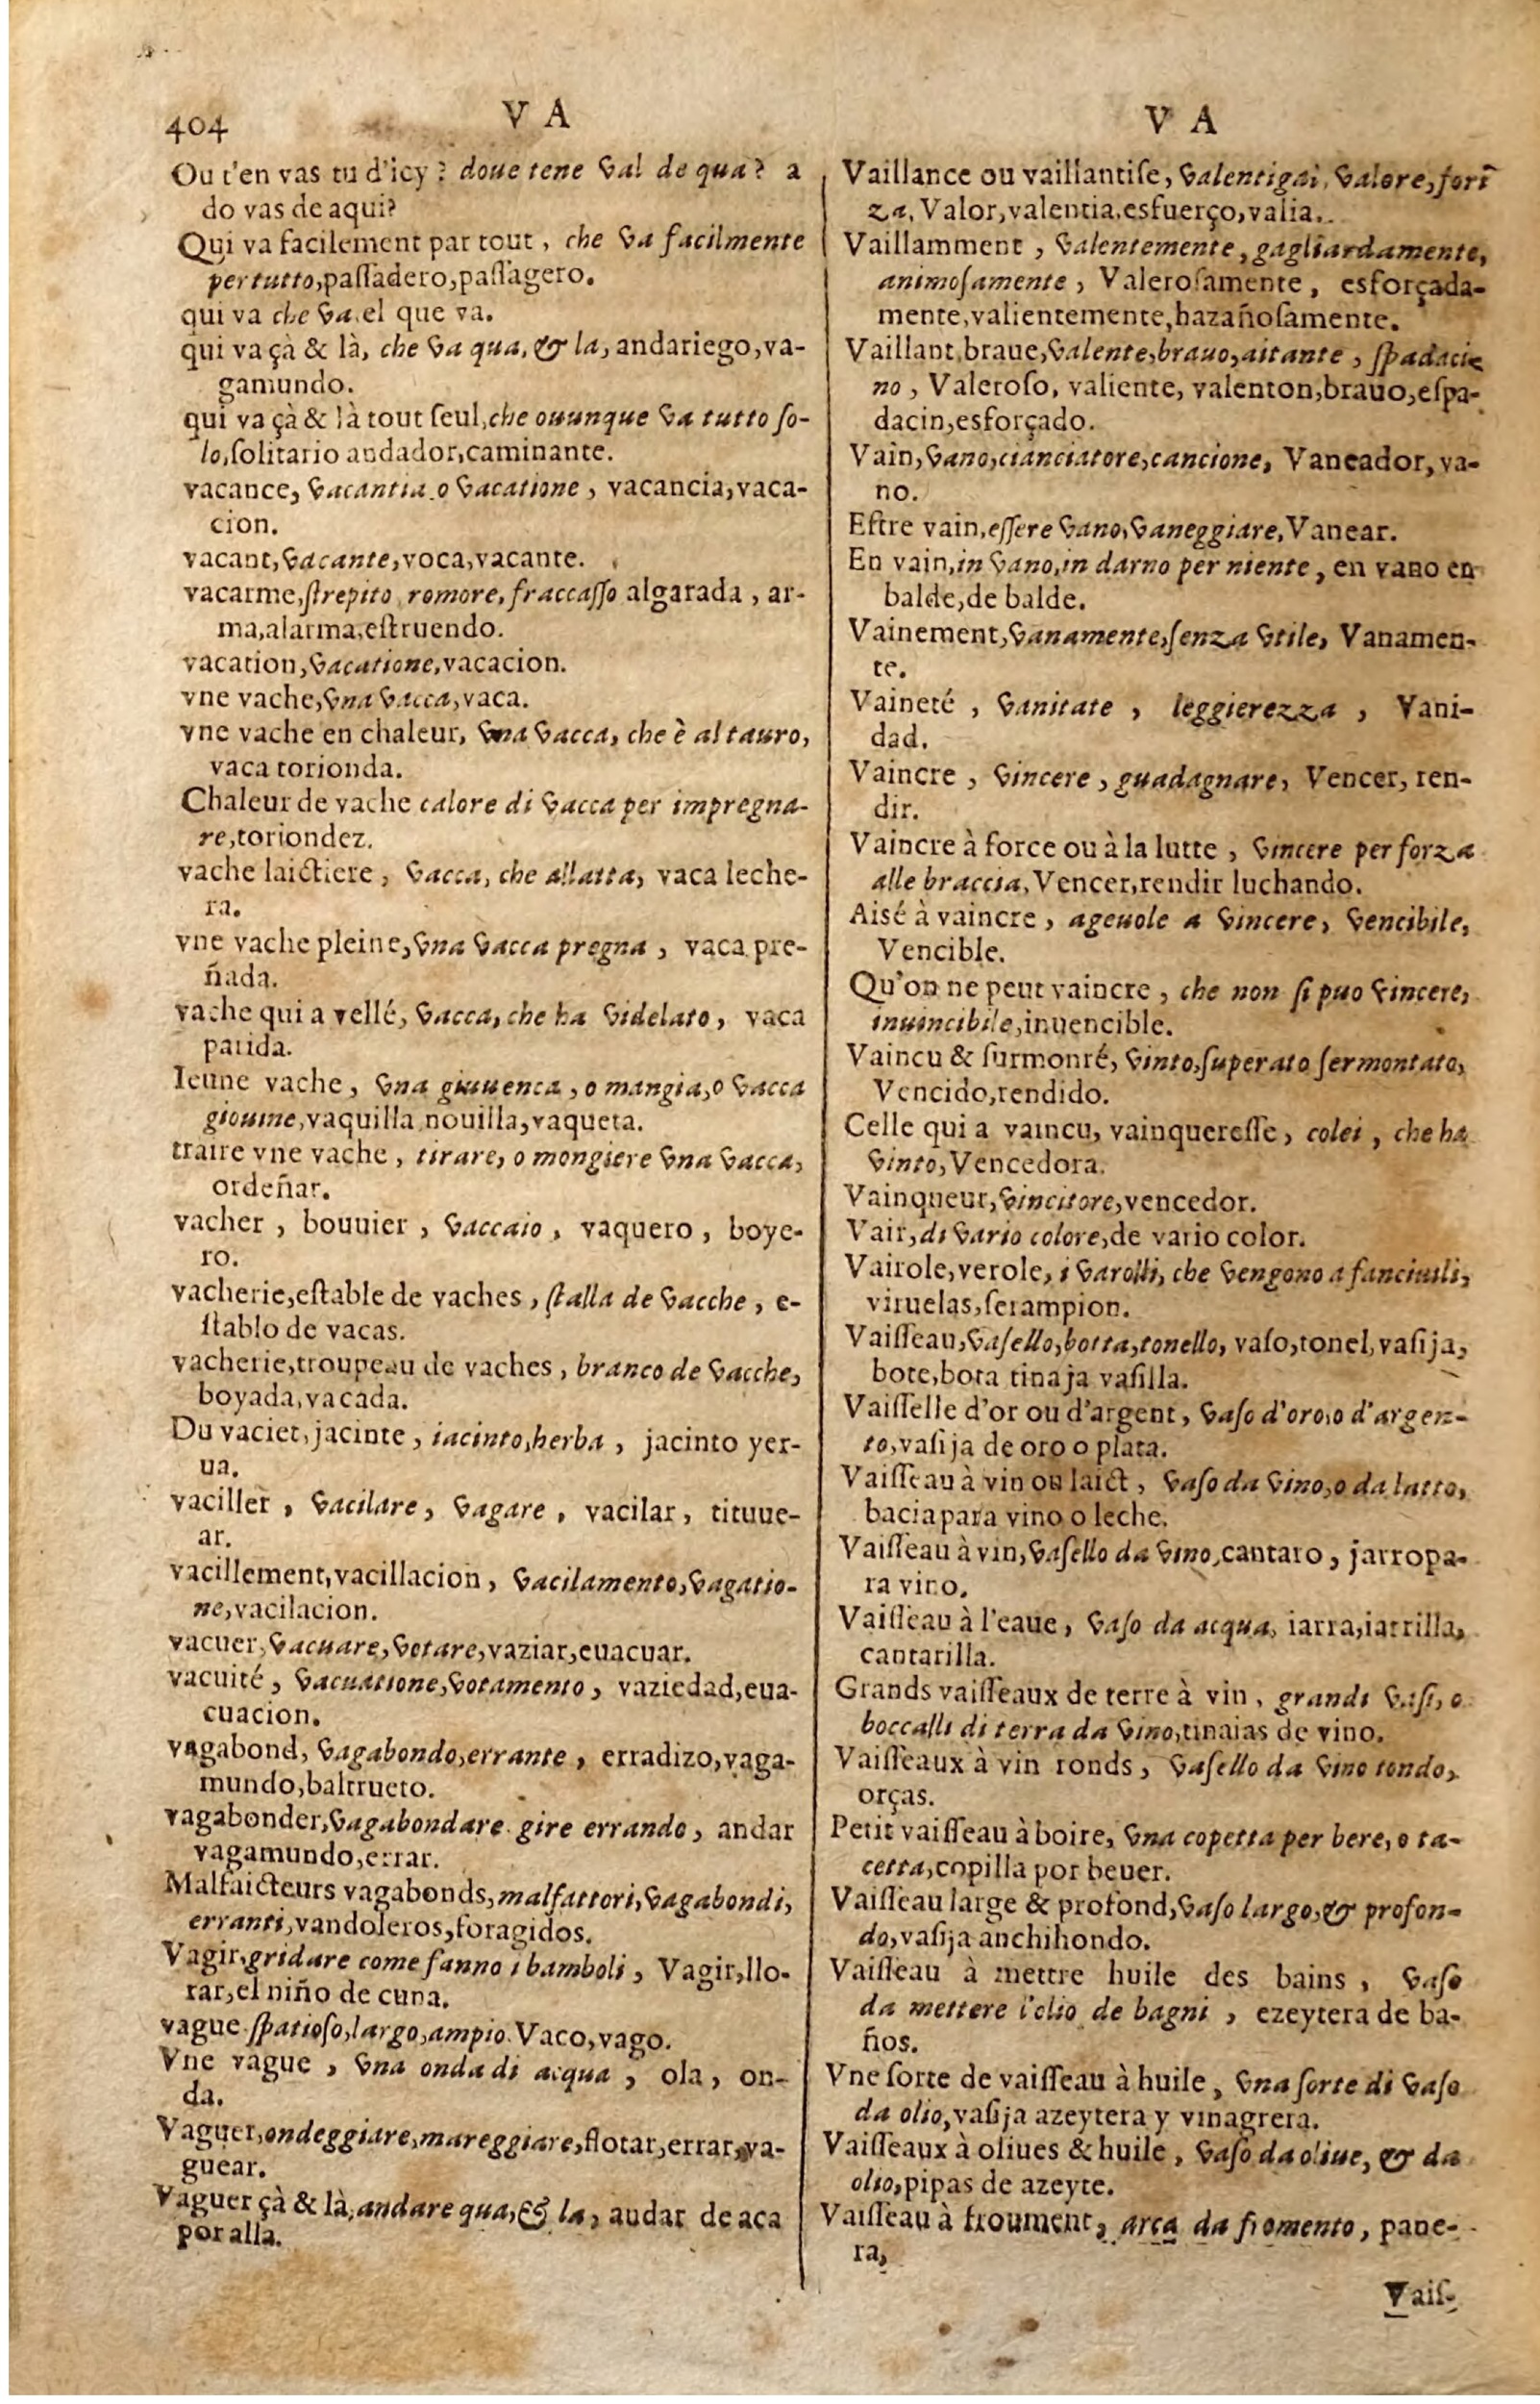 404
V A
Ou t'en vas tu d'icy? doue tene val de qua? a
do vas de aqui?
Qui va facilement par tout, che va facilmente
per tutto, passadero, passagero.
qui va che va. el que va.
qui va çà & là, che va qua, & la, andariego, va-
gamundo.
qui va çà & là tout seul, che ouunque va tutto so-
lo, solitario andador, caminante.
vacance, vacantia o vacatione, vacancia, vaca-
cion.
vacant, vacante, voca, vacante.
vacarme, strepito, romore, fraccasso algarada, ar-
ma, alarma, estruendo.
vacation, vacatione, vacacion.
vne vache, vna vacca, vaca.
vne vache en chaleur, vna vacca, che è al tauro,
vaca torionda.
Chaleur de vache calore di vacca per impregna-
re, toriondez.
vache laictiere, vacca, che allatta, vaca leche-
ra.
vne vache pleine, vna vacca pregna, vaca pre-
ñada.
vache qui a vellé, vacca, che ha videlato, vaca
parida.
Ieune vache, vna giuuenca, o mangia, o vacca
giouine, vaquilla, nouilla, vaqueta.
traire vne vache, tirare, o mongiere vna vacca,
ordeñar.
vacher, bouuier, vaccaio, vaquero, boye-
ro.
vacherie, estable de vaches, stalla de vacche, e-
stablo de vacas.
vacherie, troupeau de vaches, branco de vacche,
boyada, vacada.
Du vaciet, jacinte, iacinto, herba, jacinto yer-
ua.
vaciller, vacilare, vagare, vacilar, tituue-
ar.
vacillement, vacillacion, vacilamento, vagatio-
ne, vacilacion.
vacuer, vacuare, votare, vaziar, euacuar.
vacuité, vacuatione, votamento, vaziedad, eua-
cuacion.
vagabond, vagabondo, errante, erradizo, vaga-
mundo, baltrueto.
vagabonder, vagabondare. gire errando, andar
vagamundo, errar.
Malfaicteurs vagabonds, malfattori, vagabondi,
erranti, vandoleros, foragidos.
Vagir, gridare come fanno i bamboli, Vagir, llo-
rar, el niño de cuna.
vague. spatioso, largo, ampio. Vaco, vago.
Vne vague, vna onda di acqua, ola, on-
da.
Vaguer, ondeggiare, mareggiare, flotar, errar, va-
guear.
Vaguer çà & là, andare qua, & la, audar de aca
por alla.
V A
Vaillance ou vaillantise, valentigai, valore, fort
za, Valor, valentia, esfuerço, valia.
Vaillamment, valentemente, gagliardamente,
animosamente, Valerosamente, esforçada-
mente, valientemente, hazañosamente.
Vaillant, braue, valente, brauo, aitante, spadaci-
no, Valeroso, valiente, valenton, brauo, espa-
dacin, esforçado.
Vain, vano, cianciatore, cancione, Vaneador, va-
no.
Estre vain, essere vano, vaneggiare, Vanear.
En vain, in vano, in darno per niente, en vano en
balde, de balde.
Vainement, vanamente, senza vtile, Vanamen-
te.
Vaineté, vanitate, leggierezza, Vani-
dad.
Vaincre, vincere, guadagnare, Vencer, ren-
dir.
Vaincre à force ou à la lutte, vincere per forza
alle braccia, Vencer, rendir luchando.
Aisé à vaincre, ageuole a vincere, vencibile,
Vencible.
Qu'on ne peut vaincre, che non si puo vincere,
inuincibile, inuencible.
Vaincu & surmonté, vinto, superato sermontato,
Vencido, rendido.
Celle qui a vaincu, vainqueresse, colei, che ha
vinto, Vencedora.
Vainqueur, vincitore, vencedor.
Vair, di vario colore, de vario color.
Vairole, verole, i varolli, che vengono a fanciulli,
viruelas, serampion.
Vaisseau, vasello, botta, tonello, vaso, tonel, vasija,
bote, bota tinaja vasilla.
Vaisselle d'or ou d'argent, vaso d'oro, o d'argen-
to, vasija de oro o plata.
Vaisseau à vin ou laict, vaso da vino, o da latto,
bacia para vino o leche.
Vaisseau à vin, vasello da vino, cantaro, jarro pa-
ra vino.
Vaisseau à l'eaue, vaso da acqua, iarra, iarrilla,
cantarilla.
Grands vaisseaux de terre à vin, grandi vasi, o
boccalli di terra da vino, tinaias de vino.
Vaisseaux à vin ronds, vasello da vino tondo,
orças.
Petit vaisseau à boire, vna copetta per bere, o ta-
cetta, copilla por beuer.
Vaisseau large & profond, vaso largo, & profon-
do, vasija anchihondo.
Vaisseau à mettre huile des bains, vaso
da mettere l'elio de bagni, ezeytera de ba-
ños.
Vne sorte de vaisseau à huile, vna sorte di vaso
da olio, vasija azeytera y vinagrera.
Vaisseaux à oliues & huile, vaso da oliue, & da
olio, pipas de azeyte.
Vaisseau à froument, arca da fromento, pane-
ra,
Vais-